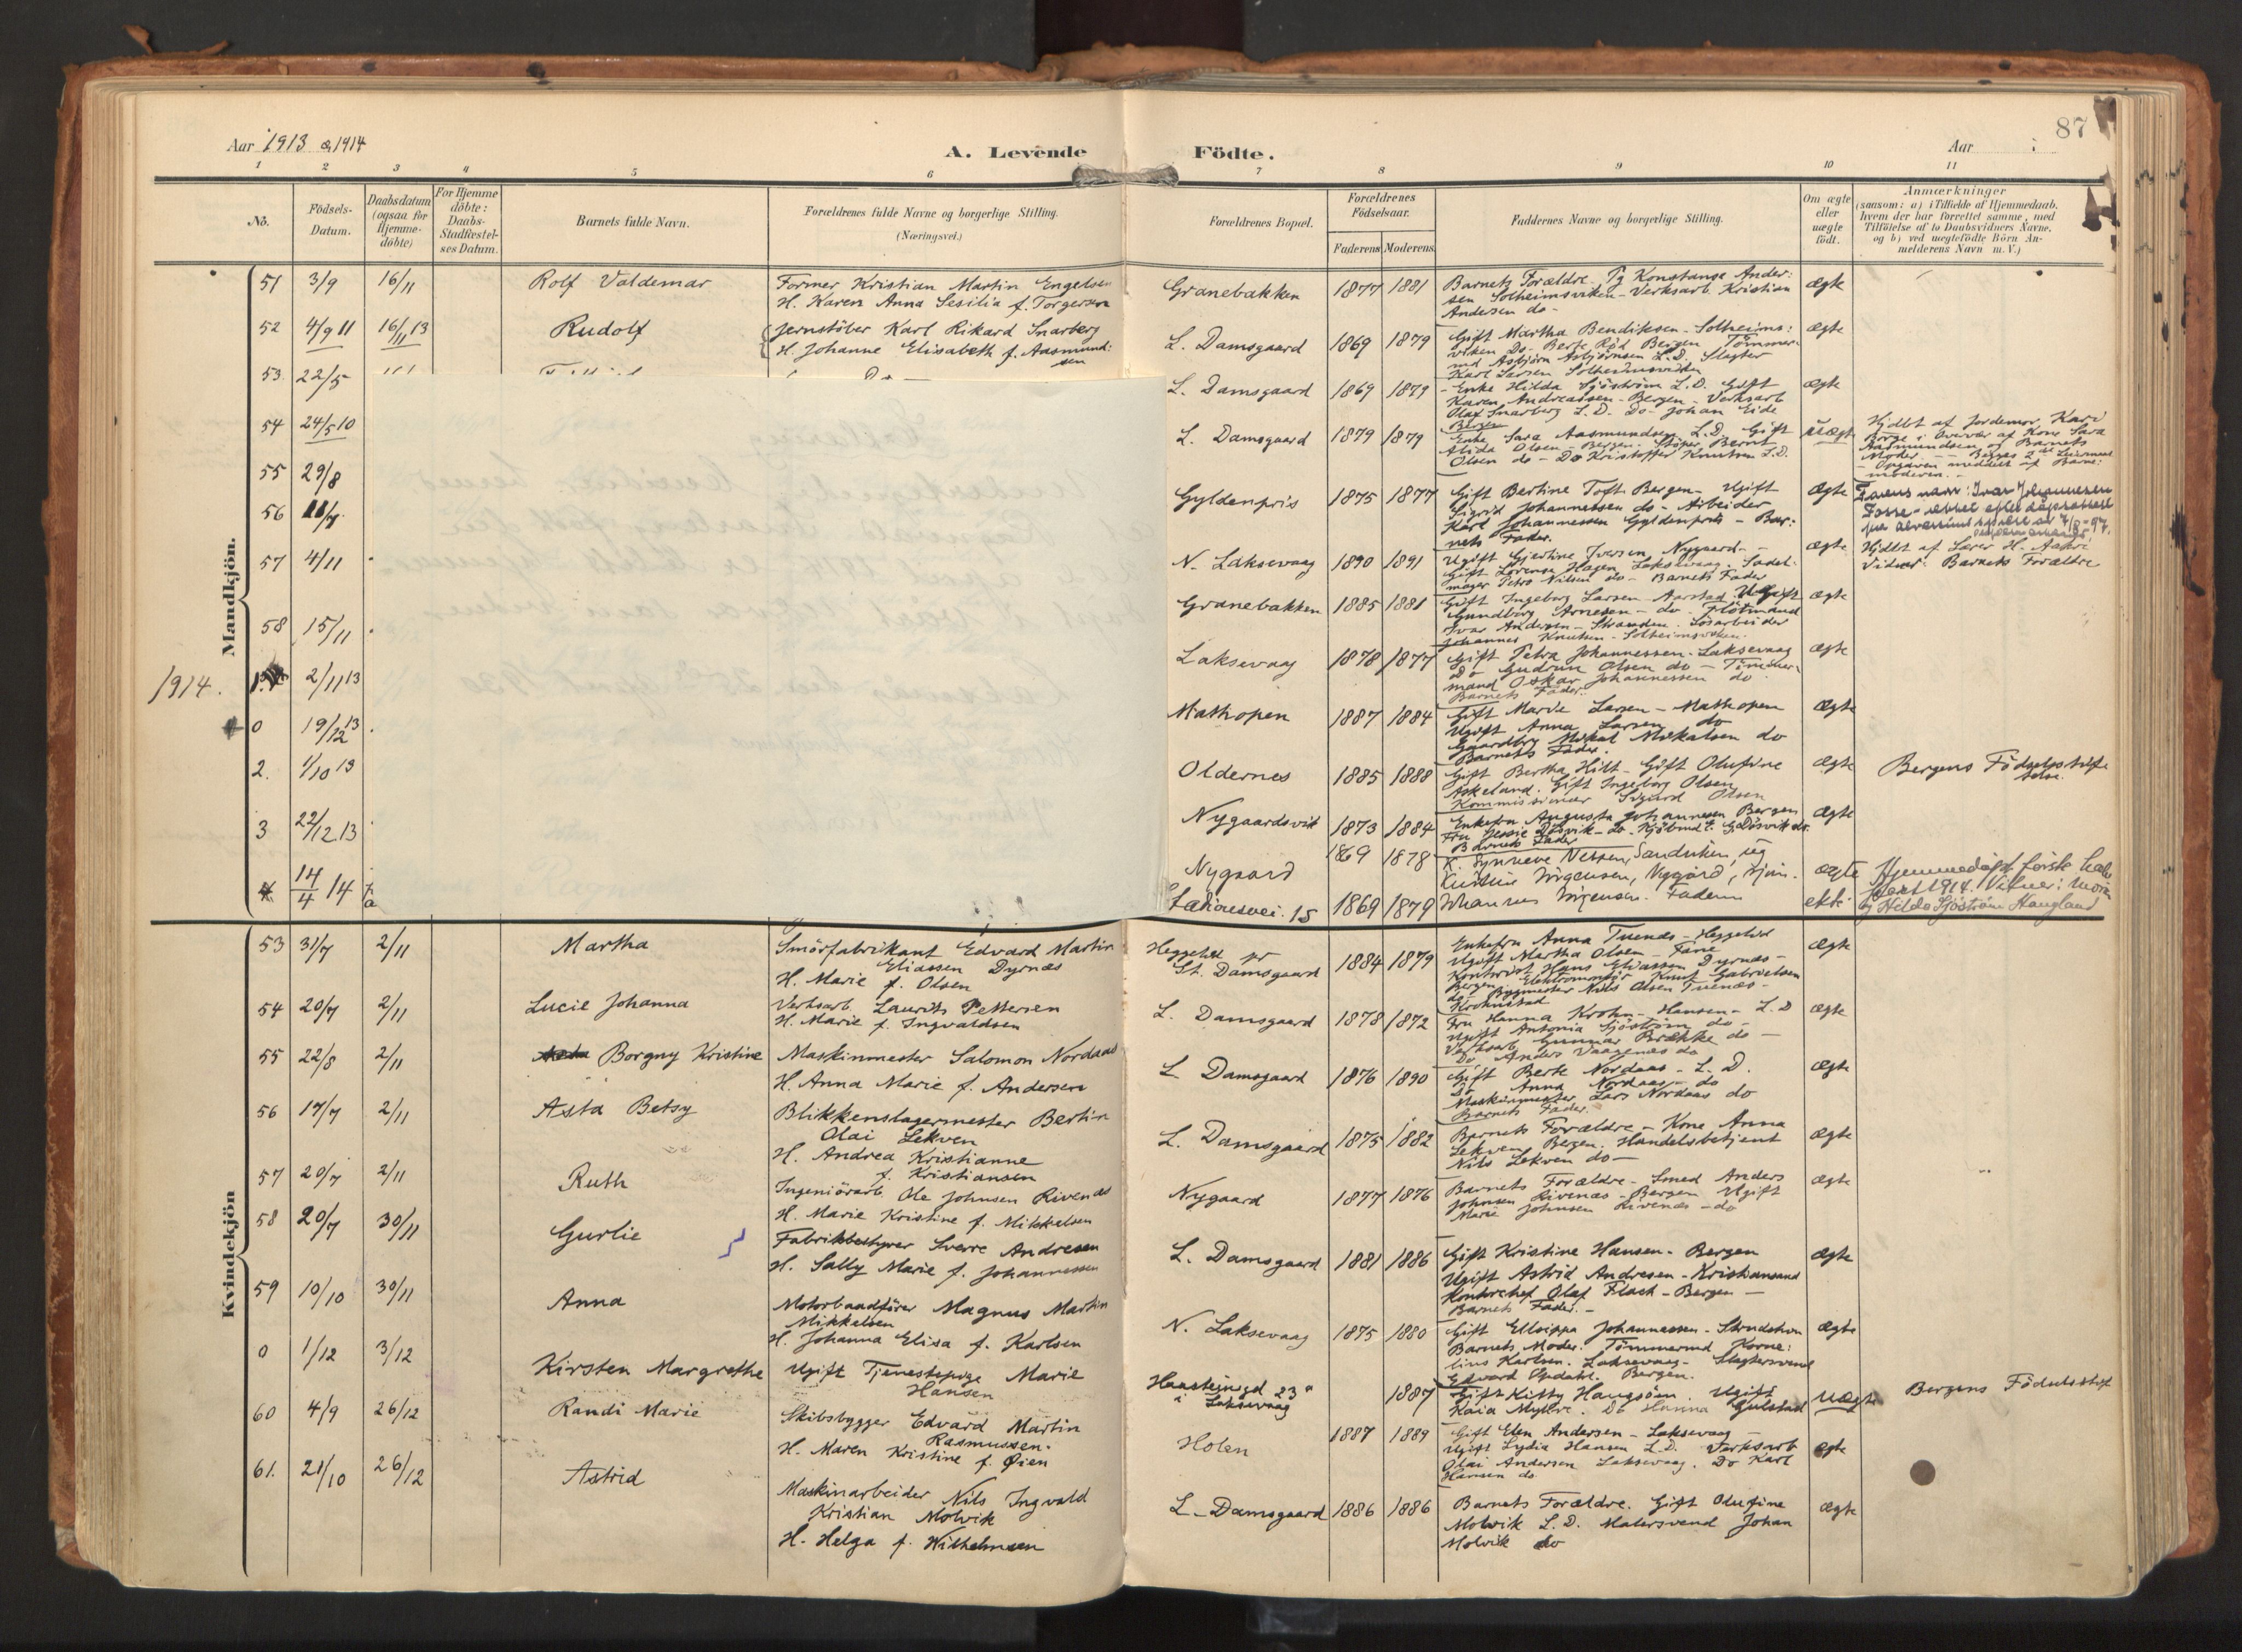 87
Aar 1913 & 1914
A. Levende Födte.
Aar
1 2 3 4 5 6 7 8 9 10 11
No.
Födsels-Datum.
Daabsdatum (ogsaa for Hjemme-döbte)
For Hjemme döbte: Daabs-Stadfæstel-ses Datum.
Barnets fulde Navn.
Forældrenes fulde Navne og borgerlige Stilling.
(Næringsvei.)
Forældrenes Bopæl.
Forældrenes Födselsaar.
Faderens Moderens
Faddernes Navne og borgerlige Stilling.
Om ægte eller uægte födt.
Anmærkninger
(saasom: a) i Tilfælde af Hjemmedaab,
hvem der har forrettet samme, med
Tilföielse af to Daabsvidners Navne,
og b) ved uægtefödte Börn An-
melderens Navn m. V.)
Mandkjön.
51 3/9 16/11 Rolf Valdemar
Former Kristian Martin Engelsen
H. Karen Anna Sesilia f. Torgersen
Granebakken 1877 1881
Barnets Forældre. Pg Konstanse Ander:
sen Solheimsviken - Verksarb. Kristian
Andersen do -
ægte
52 4/9 11 16/11 13 Rudolf
Jernstöber Karl Rikard Snarberg
H. Johanne Elisabeth f. Aasmund:
sen
L. Damsgaard 1869 1879
Gift Martha Bendiksen - Solheims:
viken Do. Berte Röd Bergen Tömmer-
md Asbjörn Asbjörnsen L.D. Slagter
Karl Larsen Solheimsviken
ægte
53 22/5
L. Damsgaard 1869 1879
- Enke Hilda Sjöström L.D. Gift
Karen Andreassen - Bergen - Verksarb
Olaf Snarberg L.D. Do - Johan Eide
Bergen
ægte
54 24/5 10
L. Damsgaard 1879 1879
Enke Sara Aasmundsen L.D. Gift
Alida Olsen - Bergen. Stöper Bernt
Olsen do - Do Kristoffer Knutsen L.D.
uægte
Hjdbt af Jordemor Kari
Börge i Overvær af Kone Sara
Aasmundsen og Barnets
Moder
55 29/8
Gyldenpris 1875 1877
Gift Bertine Toft Bergen - Ugift
Sigrid Johannessen do - Arbeider
Karl Johannessen Gyldenpris - Bar:
nets Fader.
ægte
56 11/7
N. Laksevaag 1890 1891
Ugift Gjertine Iversen Nygaard -
Gift Lorense Hagen Laksevaag. Sadel-
mager Petro Nilsen do - Barnets Fader
ægte
Hjdbt af Lærer H.
Vidner: Barnets Forældre
57 4/11
Granebakken 1885 1881
Gift Ingeborg Larsen - Aarstad Ugift
Gundborg Arnesen - do. Flötmand
Ivar Andersen - Stranden. Lösarbeider
Johannes Knutsen - Solheimsviken.
ægte
58 15/11
Laksevaag 1878 1877
Gift Petra Johannessen - Laksevaag
Do Gudrun Olsen do - Tömmer-
mand Oskar Johannessen do
Barnets Fader.
ægte
1914.
1. 2/11 13
Mathopen 1887 1884
Gift Larsen - Mathopen
Ugift Anna Larsen do
Gaardbrg Mikal Mikalsen do
Barnets Fader.
ægte
0 19/12 13
Oldernes 1885 1888
Gift Bertha Hilt - Gift Olufine
Askeland. Gift Ingeborg Olsen
Kommissionær Sigurd Olsen
ægte
Bergens Födselsstif
telse.
2. 1/10 13
Nygaardsvik 1873 1884
Enkefru Augusta Johannesen Bergen
Barnets Fader
ægte
3 22/12 13
Nygaard 1869 1878
K. Synneve Nessen, Sandviken, ug
Kristine Jörgensen, Nygård,
Johannes Jörgensen. Faderen
ægte
4. 14/4 14
15 1869 1879
ekte
Hilda Sjöström Haugland
Kvindekjön
53 31/7 2/11 Martha
Smörfabrikant Edvard Martin
Eliassen Dyrnæs
H. Marie f. Olsen
Heggeholt pr
St. Damsgaard 1884 1879
Enkefru Anna Tuenæs - Heggeholt
Ugift Martha Olsen - Fane
Kontorist Hans Eliassen Dyrnæs -
Bergen. Elektromontör Knut Gabrielsen
do - Bygmester Nils Olsen Tuenæs -
Kronstad
ægte
54 20/7 2/11 Lucie Johanna
Verksarb. Laurits Pettersen
H. Marie f. Ingvaldsen
L. Damsgaard 1878 1872
Fru Hanna Krohn - Hansen - L.D
Ugift Antonia Sjöström do -
Verksarb Gunnar Brække do -
Do Anders Vaagenæs do
ægte
55 22/8 2/11 Borgny Kristine
Maskinmester Salomon Nordaas
H. Anna Marie f. Andersen
L. Damsgaard 1876 1890
Gift Berte Nordaas - L.D.
Do Anna Nordaas - do
Maskinmester Lars Nordaas do
Barnets Fader.
ægte
56 17/7 2/11 Asta Betsy
Blikkenslagermester Bertin
Olai Lekven
H. Andrea Kristianne
f. Kristiansen
L. Damsgaard 1875 1882
Barnets Forældre - Kone Anna
Lekven Bergen. Handelsbetjent
Nils Lekven do -
ægte
57 20/7 2/11 Ruth
Ingeniörarb. Ole Johnsen Rivenæs
H. Marie Kristine f. Mikkelsen
Nygaard 1877 1876
Barnets Forældre - Smed Anders
Johnsen Rivenæs - Bergen Ugift
Marie Johnsen Rivenæs - do
ægte
58 20/7 30/11 Gurlie
Fabrikbestyrer Sverre Andresen
H. Sally Marie f. Johannessen
L. Damsgaard 1881 1886
Gift Kristine Hansen - Bergen
Ugift Astrid Andresen - Kristiansand
Kontorchef Olaf Flack - Bergen -
Barnets Fader. -
ægte
59 10/10 30/11 Anna
Motorbaadförer Magnus Martin
Mikkelsen
H. Johanna Elisa f. Karlsen
N. Laksevaag 1875 1880
Gift Johannessen -
Barnets Moder. Tömmermd Korne:
lius Karlsen. Laksevaag - Slagtersvend
Edvard Opdahl. Bergen.
ægte
0 1/12 3/12 Kirsten Margrethe
Ugift Tjenestepige Marie
Hansen
23 a
i Laksevaag 1887
Gift Kitty Haugsöen. Ugift
Kaia Myhre. Do Hanna Gulstad
uægte
Bergens Födselsstif
60 4/9 26/12 Randi Marie
Skibsbygger Edvard Martin
Rasmussen.
H. Maren Kristine f. Øien
Holen 1887 1889
Gift Elen Andersen - Laksevaag -
Ugift Lydia Hansen L.D. Verksarb
Olai Andersen Laksevaag. Do Karl
Hansen do.
ægte
61. 21/10 26/12 Astrid
Maskinarbeider Nils Ingvald
Kristian Molvik
H. Helga f. Wilhelmsen
L. Damsgaard 1886 1886
Barnets Forældre. Gift Olufine
Molvik L.D. Malersvend Johan
Molvik do
ægte